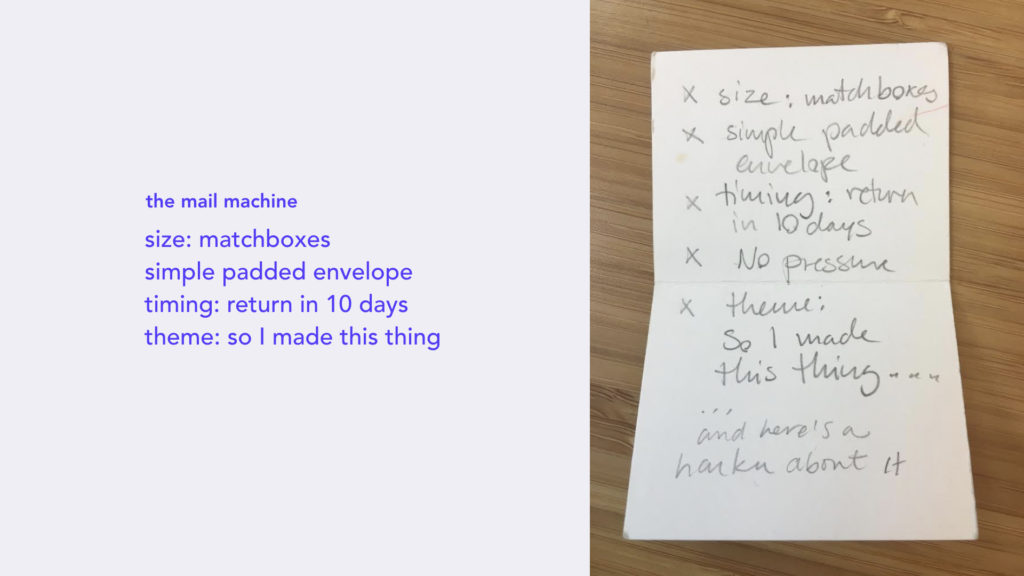 the mail machine
size: matchboxes
simple padded envelope
timing: return in 10 days
theme: so I made this thing
x size: matchboxes
x simple padded
envelope
x timing: return
in 10 days
x No pressure
x theme:
So I made
this thing....
...and here's a
haiku about it